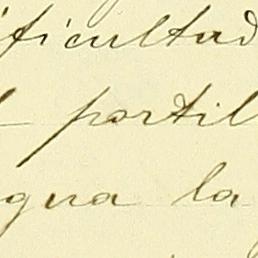 ificultad
portil
gua la